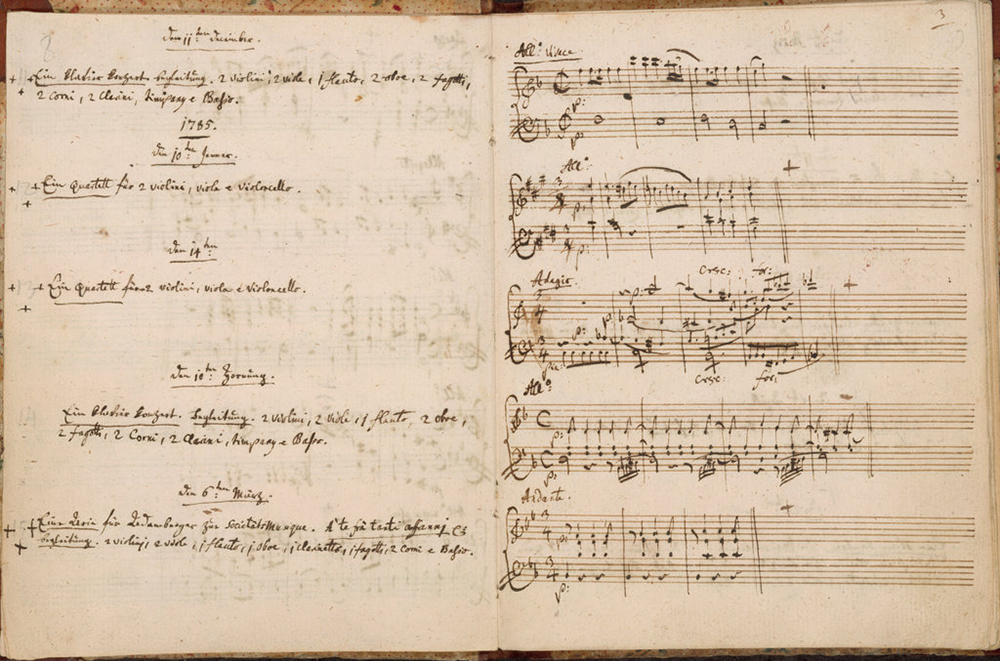 Den 11:ten December.
Ein Klavier Konzert. Begleitung. 2 violini, 2 viole, 1 flauto, 2 oboe, 2 fagotti,
2 Corni, 2 Clarini, timpany e Baßo.
1785.
Den 10:ten Jenner.
Ein Quartett für 2 violini, viola e violoncello.
Den 14:ten
Ein Quartett für 2 violini, viola e violoncello.
Den 10:ten Hornung.
Ein Klavier Konzert. Begleitung. 2 violini, 2 viole, 1 flauto, 2 oboe,
2 fagotti, 2 Corni, 2 Clarini, timpany e Baßo.
Den 6:ten März.
Eine Aria für Adamberger zur Societäts Musique. A te frà tanti affanni &c
begleitung. 2 violini, 2 viole, 1 flauto, 1 oboe, 1 clarinetto, 1 fagotto, 2 Corni e Baßo.
3
All:o vivace
p:
p:
All:o
p:
p:
Adagio.
cresc: for:
p:
p:
cresc: for:
All:o
p:
p:
Andante.
p:
p: